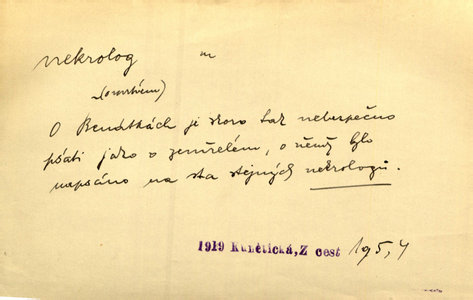 nekrolog m
(o mrtvém)
O Benátkách je skoro tak nebezpečno
psáti jako o zemřelém, o němž bylo
napsáno na sta stejných nekrologů.
1919 Kunětická, Z cest 195,4